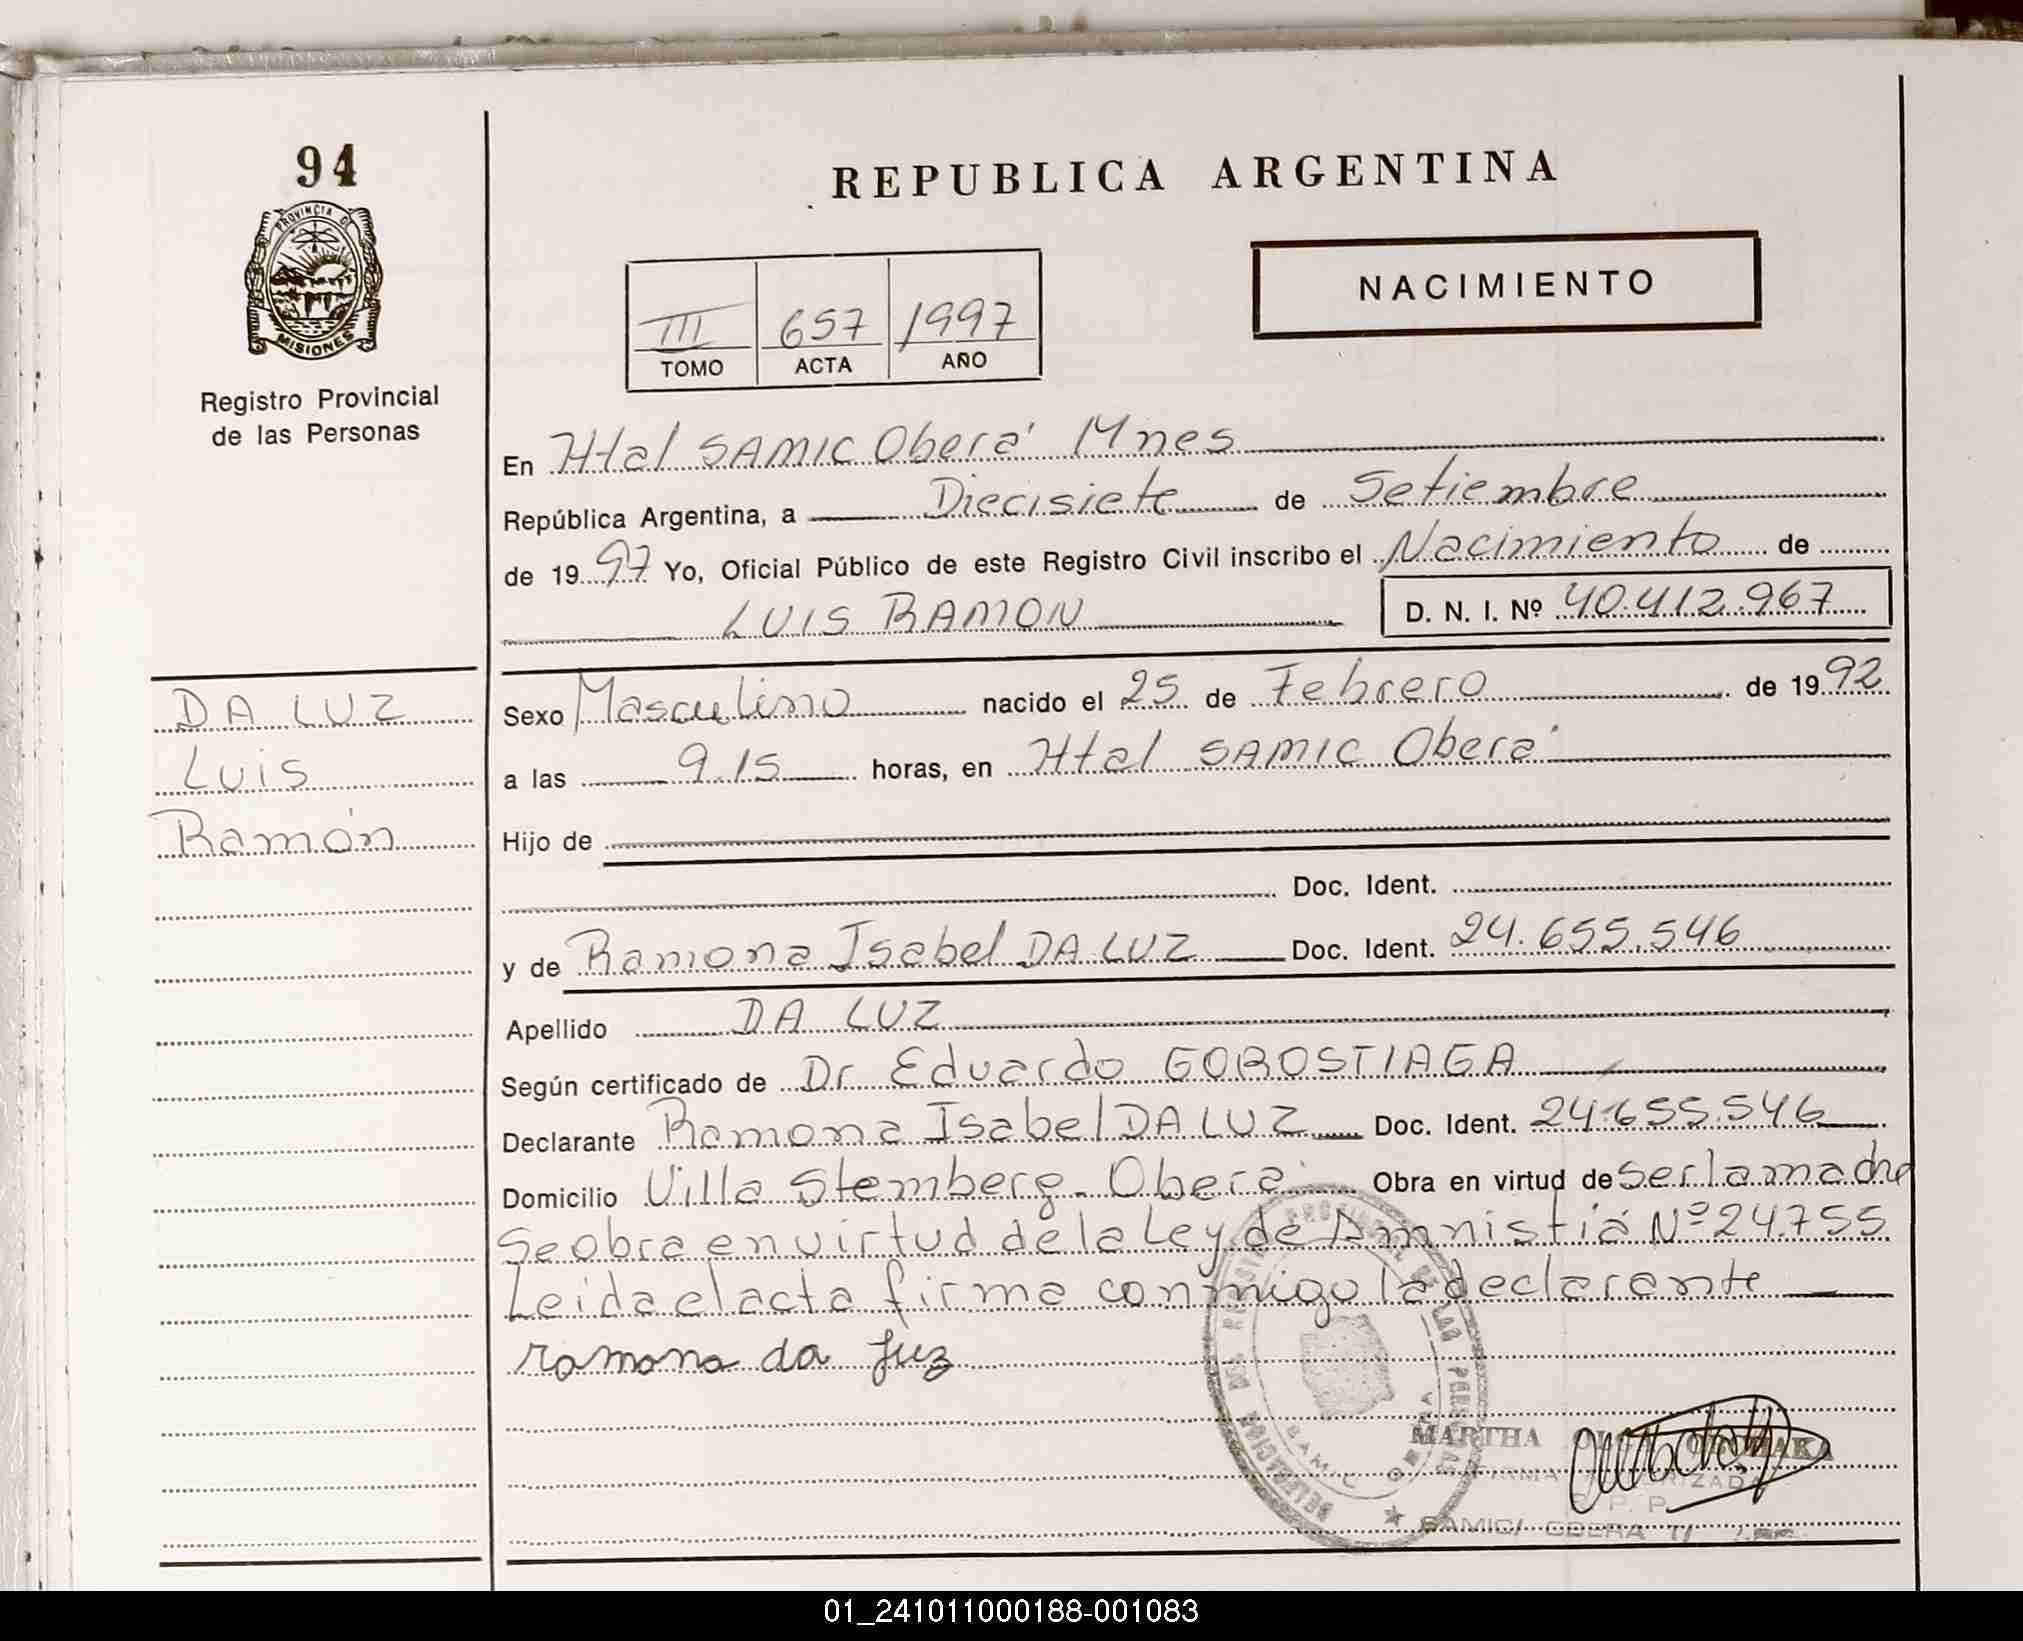 94
PROVINCIA D
MISIONES
Registro Provincial
de las Personas
REPUBLICA ARGENTINA
NACIMIENTO
III 657 1997
TOMO ACTA AÑO
En Htal SAMIC Oberá Mnes
República Argentina, a Diecisiete de Setiembre
de 1997 Yo, Oficial Público de este Registro Civil inscribo el Nacimiento de
LUIS RAMON D. N. I. Nº 40.412.967
DA LUZ
Luis
Ramón
Sexo Masculino nacido el 25 de Febrero de 1992
a las 9.15 horas, en Htal SAMIC Oberá
Hijo de
Doc. Ident.
y de Ramona Isabel DA LUZ Doc. Ident. 24.655.546
Apellido DA LUZ
Según certificado de Dr Eduardo GOROSTIAGA
Declarante Ramona Isabel DA LUZ Doc. Ident. 24.655.546
Domicilio Villa Stemberg - Oberá Obra en virtud de ser la madre
Se obra en virtud de la Ley de Amnistiá Nº 24.755
Leida el acta firma conmigo la declarante
ramona da luz
DELEGACION DEL REGISTRO PROVINCIAL DE LAS PERSONAS
SAMIC OBERA
MARTHA
FIRMA AUTORIZADA
R. P. P.
SAMIC/ OBERA
01_241011000188-001083